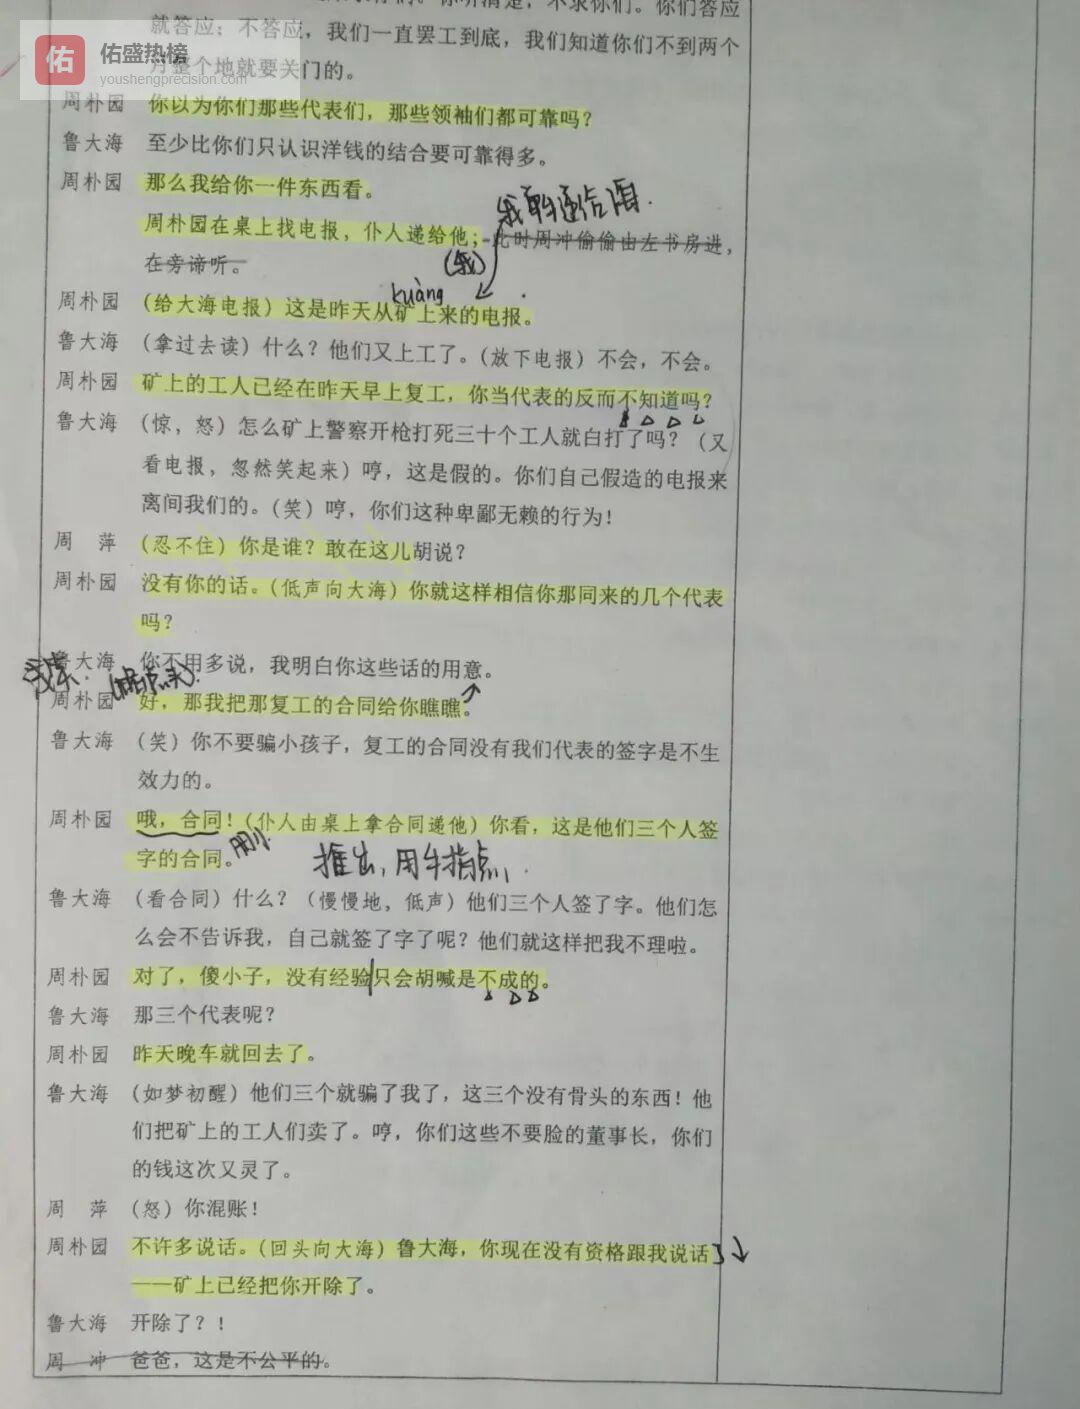 就答应；不答应，我们一直罢工到底，我们知道你们不到两个
月整个地就要关门的。
佑
佑盛热榜
youshengprecision.com
周朴园 你以为你们那些代表们，那些领袖们都可靠吗？
鲁大海 至少比你们只认识洋钱的结合要可靠得多。
周朴园 那么我给你一件东西看。
周朴园在桌上找电报，仆人递给他；此时周冲偷偷由左书房进，
在旁谛听。
kuàng
周朴园 （给大海电报）这是昨天从矿上来的电报。
鲁大海 （拿过去读）什么？他们又上工了。（放下电报）不会，不会。
周朴园 矿上的工人已经在昨天早上复工，你当代表的反而不知道吗？
鲁大海 （惊，怒）怎么矿上警察开枪打死三十个工人就白打了吗？（又
看电报，忽然笑起来）哼，这是假的。你们自己假造的电报来
离间我们的。（笑）哼，你们这种卑鄙无赖的行为！
周 萍 （忍不住）你是谁？敢在这儿胡说？
周朴园 没有你的话。（低声向大海）你就这样相信你那同来的几个代表
吗？
鲁大海 你不用多说，我明白你这些话的用意。
周朴园 好，那我把那复工的合同给你瞧瞧。
鲁大海 （笑）你不要骗小孩子，复工的合同没有我们代表的签字是不生
效力的。
周朴园 哦，合同！（仆人由桌上拿合同递他）你看，这是他们三个人签
字的合同。
推出，用手指点
鲁大海 （看合同）什么？（慢慢地，低声）他们三个人签了字。他们怎
么会不告诉我，自己就签了字了呢？他们就这样把我不理啦。
周朴园 对了，傻小子，没有经验只会胡喊是不成的。
鲁大海 那三个代表呢？
周朴园 昨天晚车就回去了。
鲁大海 （如梦初醒）他们三个就骗了我了，这三个没有骨头的东西！他
们把矿上的工人们卖了。哼，你们这些不要脸的董事长，你们
的钱这次又灵了。
周 萍 （怒）你混账！
周朴园 不许多说话。（回头向大海）鲁大海，你现在没有资格跟我说话
——矿上已经把你开除了。
鲁大海 开除了？！
周 冲 爸爸，这是不公平的。